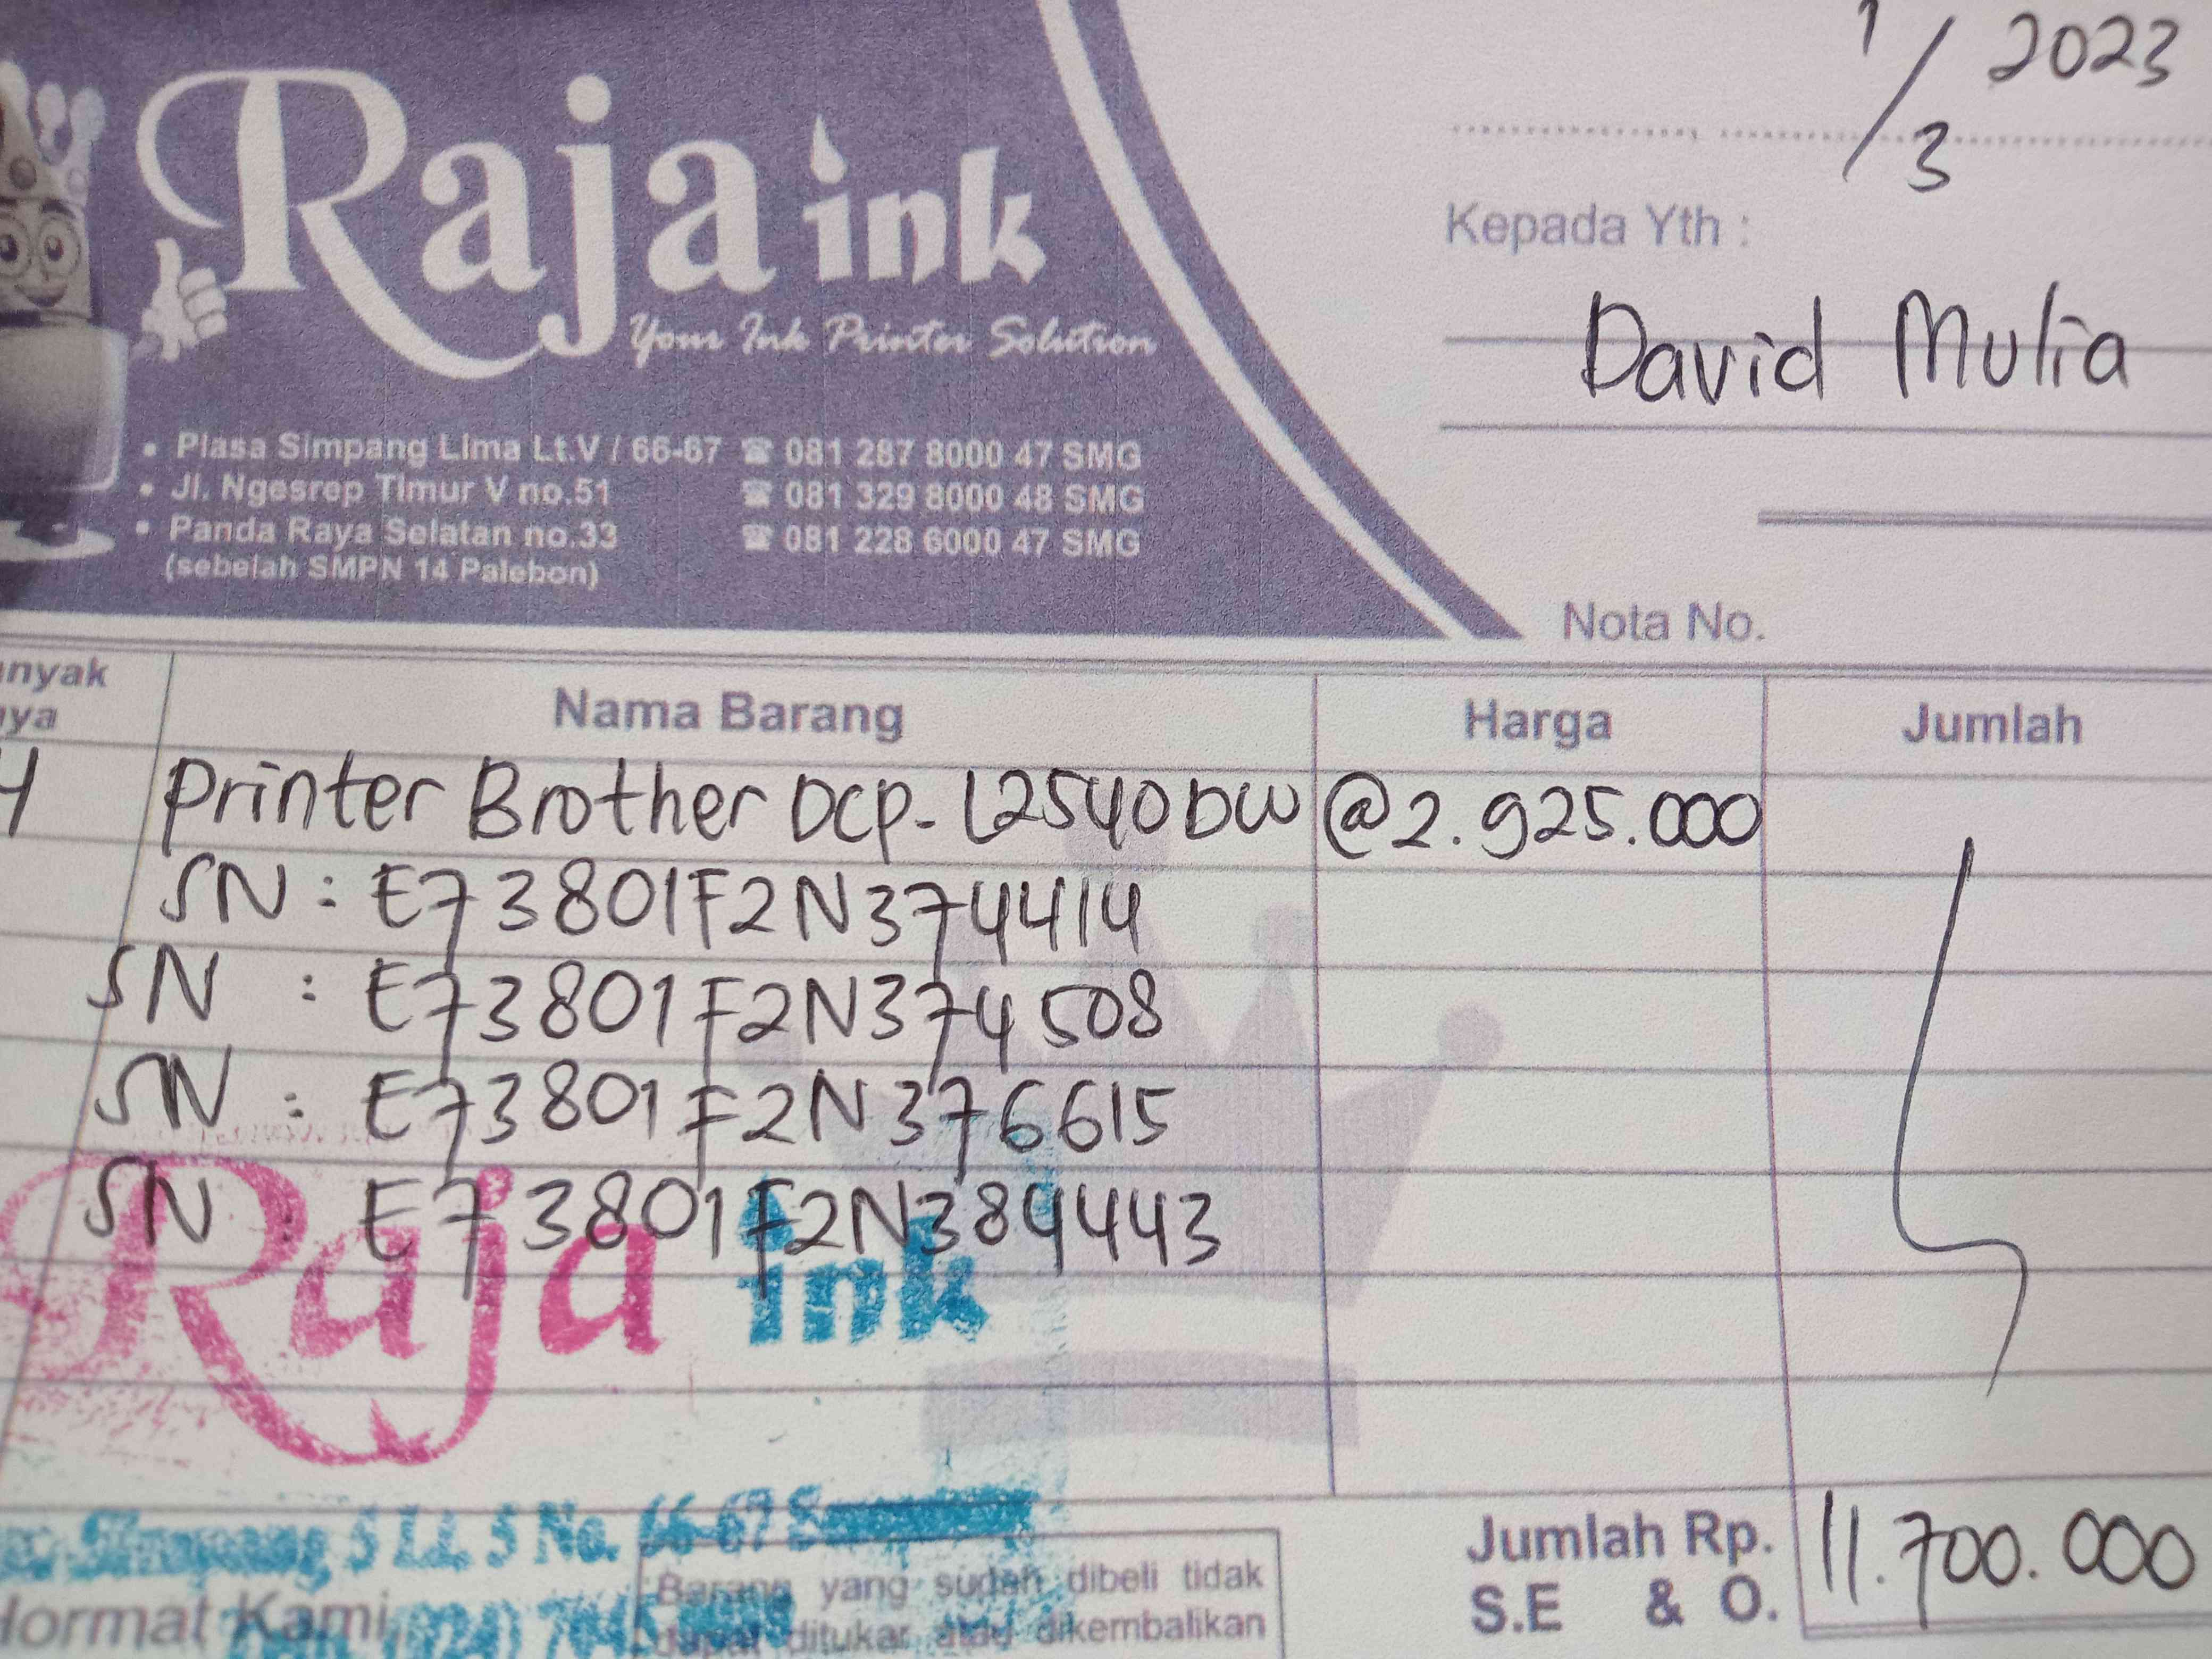 Raja ink
Your Ink Printer Solution
• Plasa Simpang Lima Lt.V / 66-67 ☎ 081 287 8000 47 SMG
• Jl. Ngesrep Timur V no.51 ☎ 081 329 8000 48 SMG
• Panda Raya Selatan no.33 ☎ 081 228 6000 47 SMG
(sebelah SMPN 14 Palebon)
1/3 2023
Kepada Yth :
David Mulia
Nota No.
anyak
nya
Nama Barang Harga Jumlah
4 Printer Brother DCP-L2540DW @2.925.000
SN : E73801F2N374414
SN : E73801F2N374508
SN : E73801F2N376615
SN : E73801F2N384443
Raja ink
Simpang 5 Lt. 5 No. 66-67
Hormat Kami,
(024)
Barang yang sudah dibeli tidak
dapat ditukar atau dikembalikan
Jumlah Rp. 11.700.000
S.E & O.